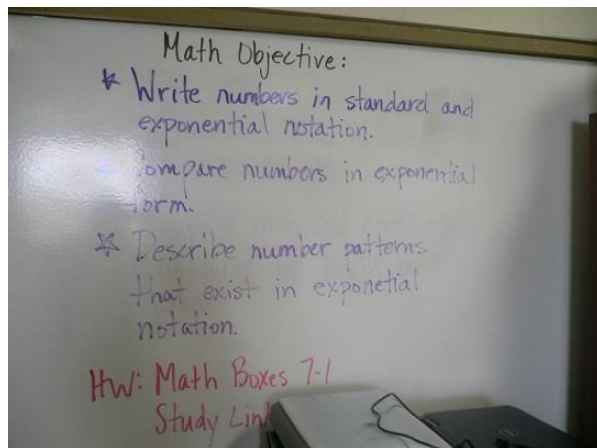 Math Objective:
* Write numbers in standard and
exponential notation.
* Compare numbers in exponential
form.
* Describe number patterns
that exist in exponetial
notation.
HW: Math Boxes 7-1
Study Link